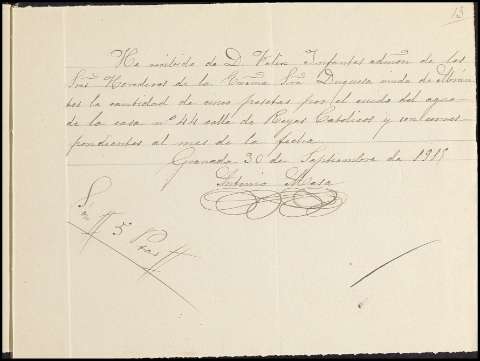 13
He recibido de D. Infantas admon de los
Sres Herederos de la Excma Sra Duquesa viuda de Abran-
tes la cantidad de cinco pesetas por el cuido del agua
de la casa nº 44 calle de Reyes Catolicos y son corres-
pondientes al mes de la fecha
Granada 30 de Septiembre de
Antonio Mesa
5 Ptas